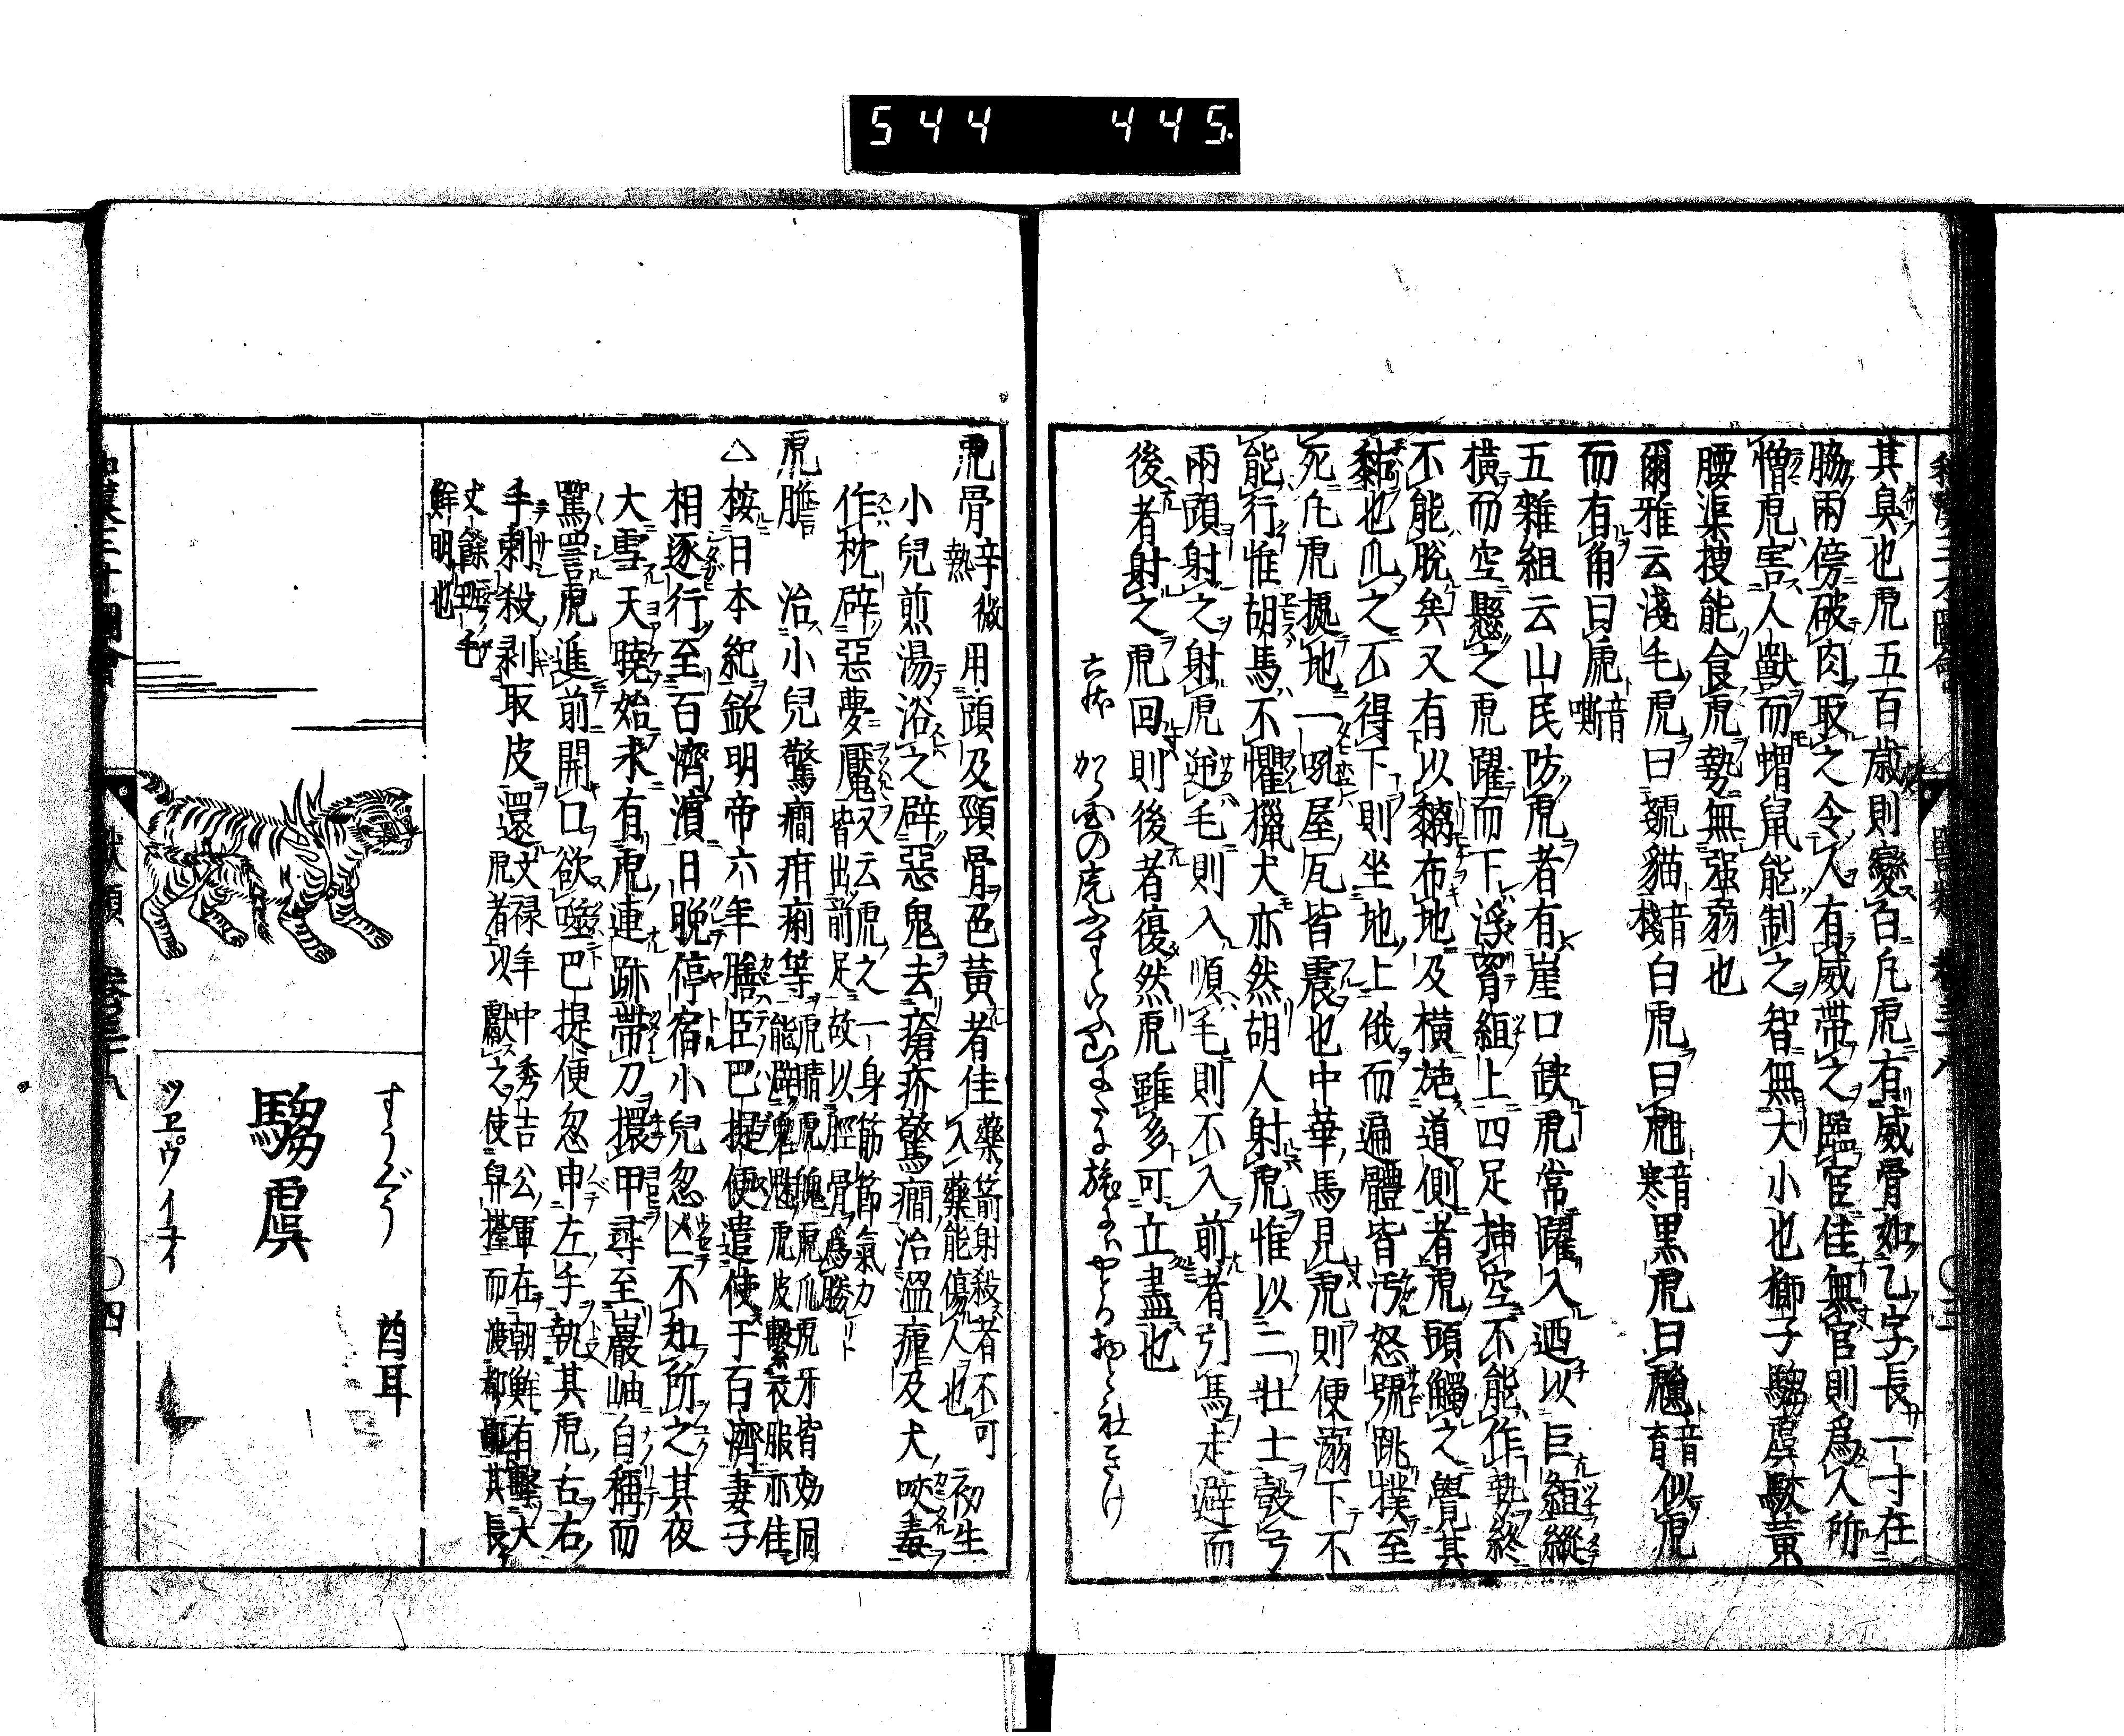 544 445
和漢三才圖會 獸類 卷三十八 〇三
其臭也虎五百歲則變白凡虎有威骨如乙字長一寸在
脇兩傍破肉取之令人有威帶之臨官佳無官則爲人所
憎虎害人獸而蝟鼠能制之智無大小也獅子騶虞駮黃
腰渠搜能食虎勢無强弱也
爾雅云淺毛虎曰虦貓音棧白虎曰甝音寒黑虎曰虪音育似虎
而有角曰虒音嘶
五雜組云山民防虎者有崖口缺虎常躍入迺以巨組縱
橫而空懸之虎躍而下浮罥組上四足挿空不能作勢終
不能脫矣又有以黐布地及橫施道側者虎頭觸之覺其
黏也爪之不得下則坐地上俄而遍體皆汚怒號跳撲至
死凡虎據地一吼屋瓦皆震也中華馬見虎則便溺下不
能行惟胡馬不懼獵犬亦然胡人射虎惟以二壯士彀弓
兩頭射之射虎逆毛則入順毛則不入前者引馬走避而
後者射之虎回則後者復然虎雖多可立盡也
虎骨辛微熱用頭及頸骨色黃者佳藥箭射殺者不可入藥能傷人也初生
小兒煎湯浴之辟惡鬼去瘡疥驚癇治溫瘧及犬咬毒
作枕辟惡夢魘又云虎之一身筋節氣力皆出前足故以脛骨爲勝
虎膽 治小兒驚癇疳痢等虎睛虎魄虎爪虎牙皆効同能辟鬼魅虎皮繫衣服亦佳
△按日本紀欽明帝六年膳臣巴提便遣使于百濟妻子
相逐行至百濟濱日晚停宿小兒忽亡不知所之其夜
大雪天曉始求有虎連跡帶刀擐甲尋至巖岫自稱而
罵詈虎進前開口欲噬巴提便忽申左手執其虎舌右
手刺殺剥取皮還文禄年中秀吉公軍在朝鮮有擊大虎者以獻之使舁擡而渡都鄙其長
丈餘班毛鮮明也
すうぐう
騶虞
酋耳
ツエウ イユイ
獸類 卷三十八 〇四